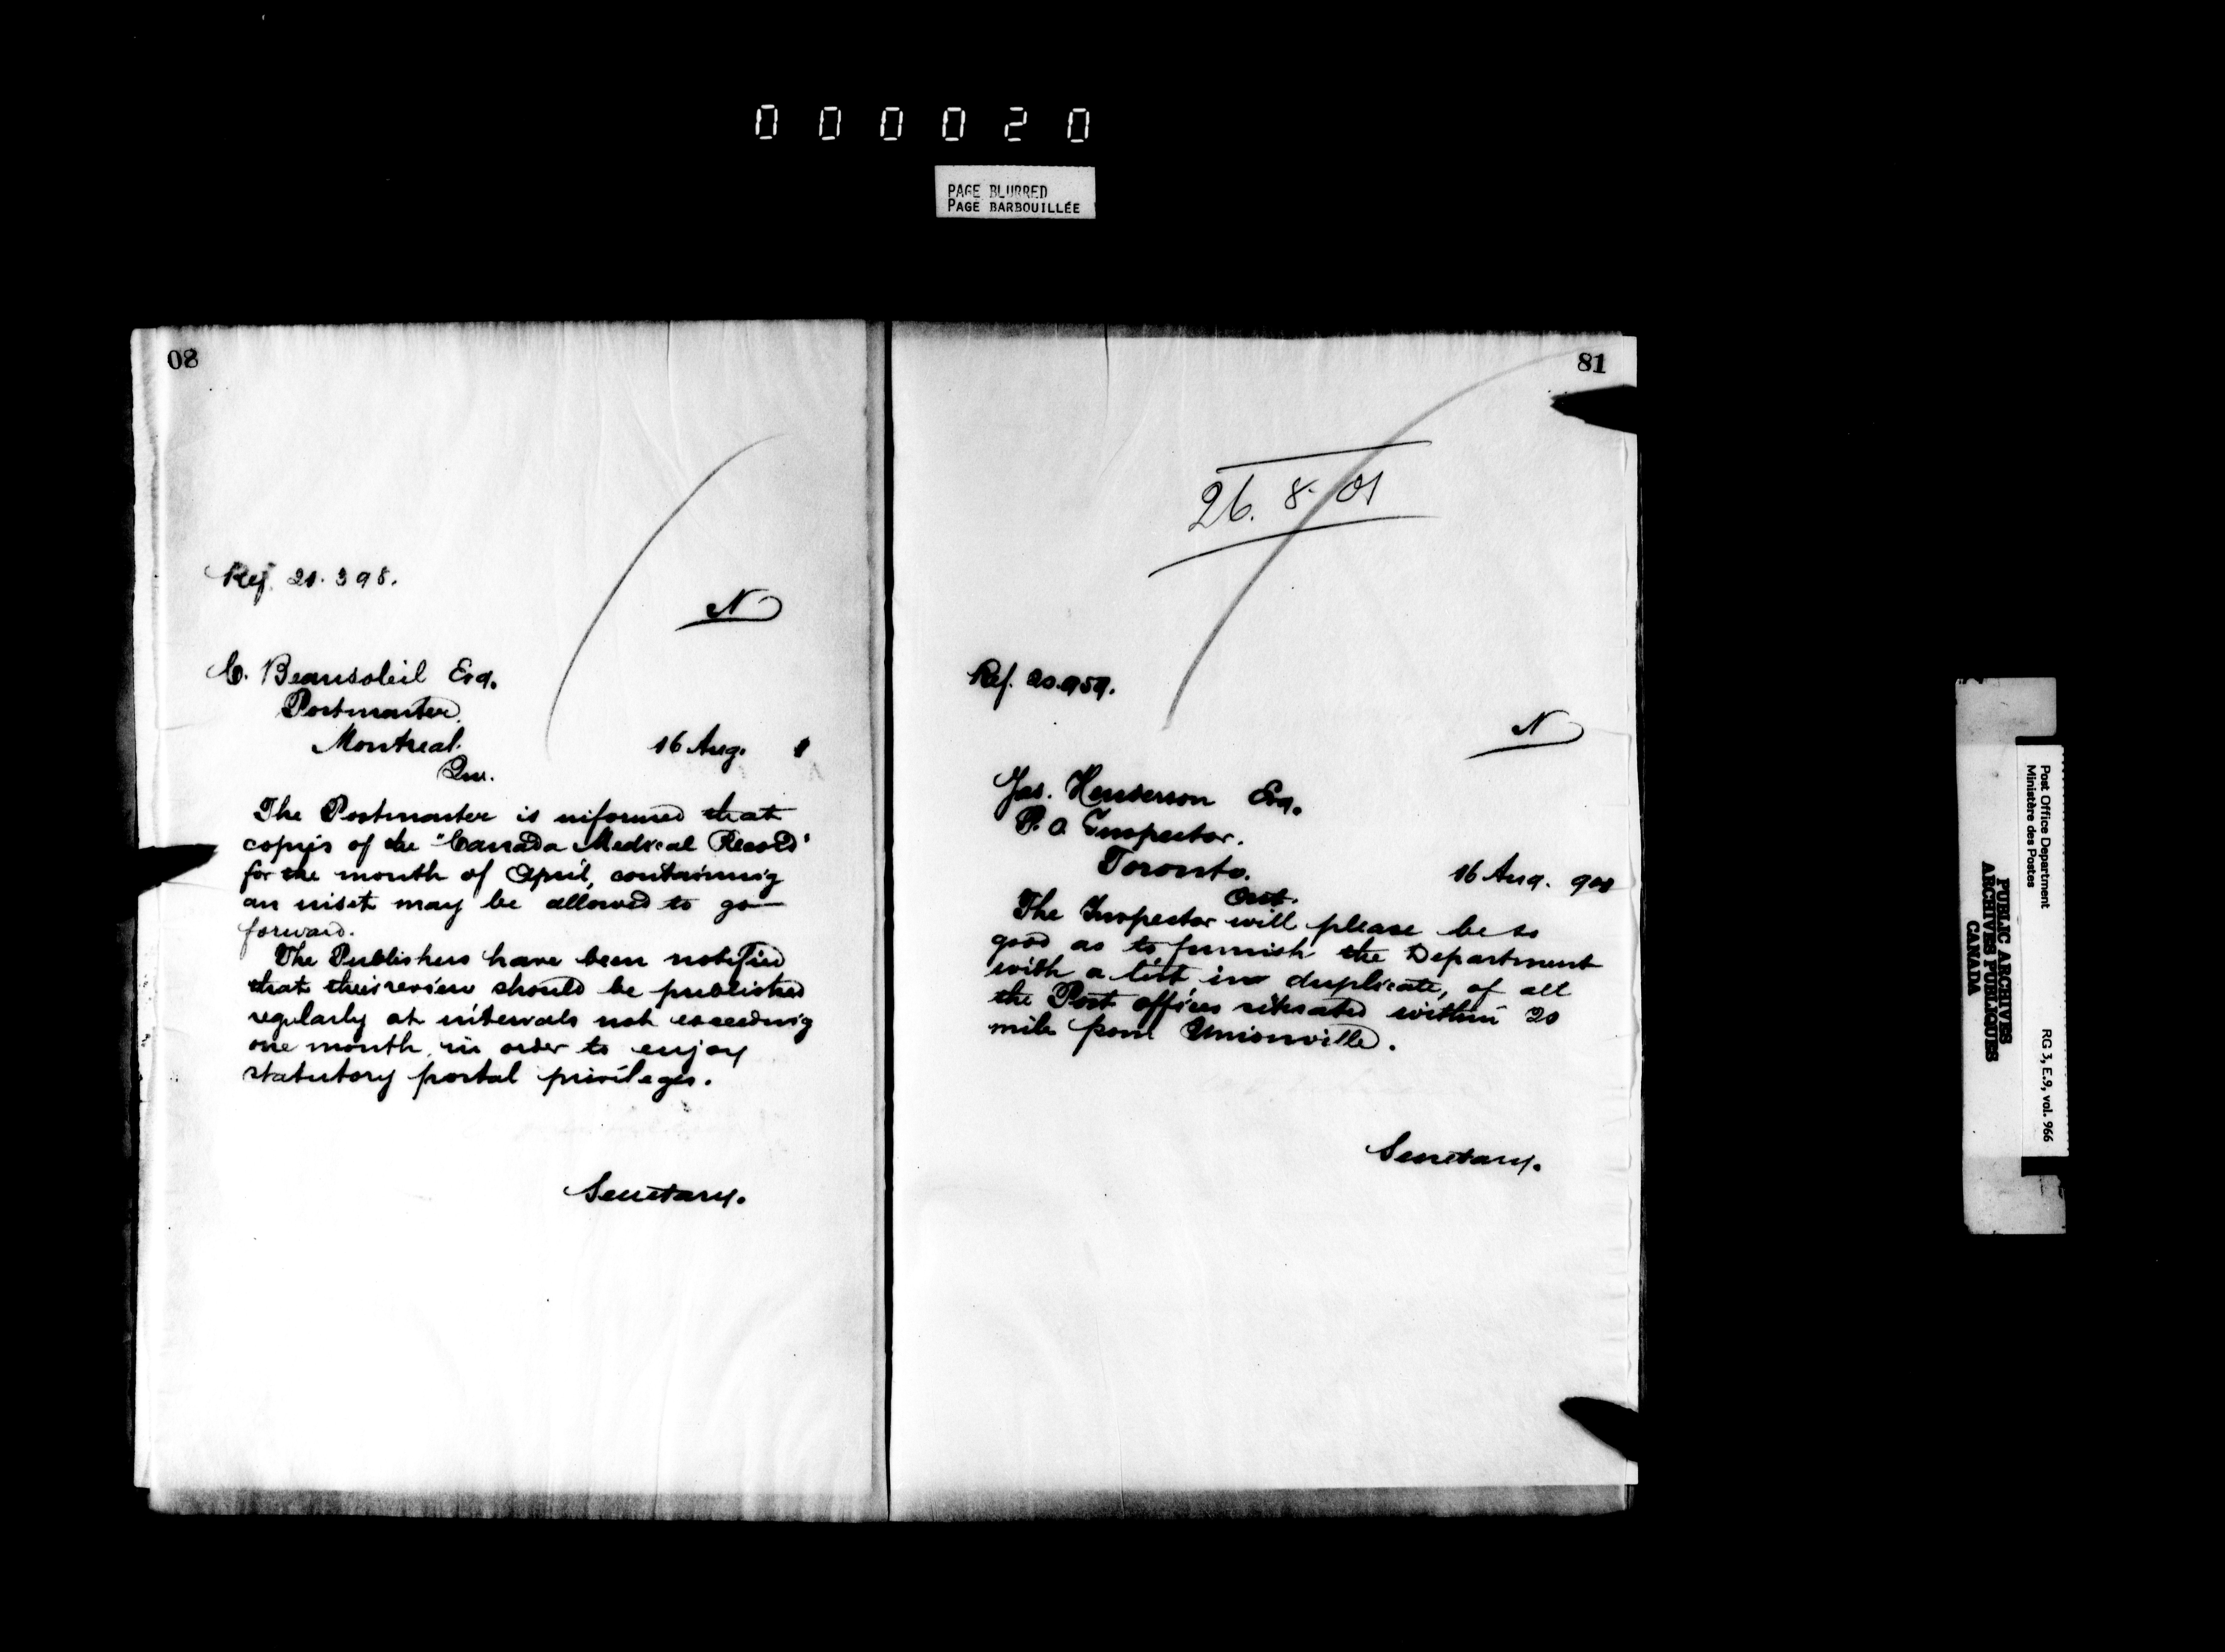 000020
PAGE BLURRED
PAGE BARBOUILLÉE
80
Ref. 21.398.
N
C. Beausoleil Esq.
Postmaster,
Montreal. 16 Aug. 1
Que.
The Postmaster is informed that
copies of the "Canada Medical Record"
for the month of April, containing
an inset may be allowed to go
forward.
The Publishers have been notified
that their review should be published
regularly at intervals not exceeding
one month, in order to enjoy
statutory postal privileges.
Secretary.
81
26. 8. 01
Ref. 20.959.
N
Jas. Henderson Esq.
P. O. Inspector.
Toronto. 16 Aug. 901
Ont.
The Inspector will please be so
good as to furnish the Department
with a list in duplicate, of all
the Post offices situated within 20
mile from Unionville.
Secretary.
Post Office Department
Ministère des Postes
RG 3, E.9, vol. 966
PUBLIC ARCHIVES
ARCHIVES PUBLIQUES
CANADA